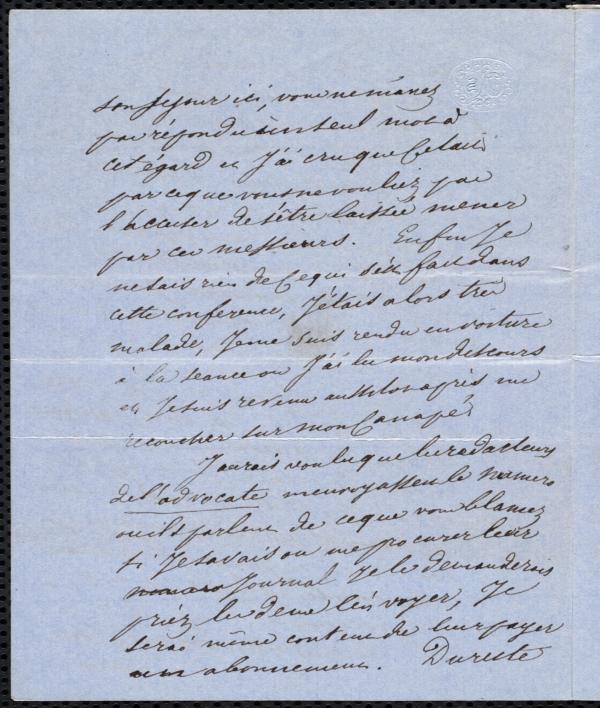 son sejour ici, vous ne m'avez
pas répondu un seul mot à
cet égard et J'ai cru que C'etait
parceque vous ne vouliez pas
l'accuser de s'être laissée mener
par ces messieurs. Enfin Je
ne sais rien de Cequi s'est fait dans
cette conference, J'étais alors très
malade, Je me suis rendu en voiture
à la seance ou J'ai lu mon discours
et Je suis revenu aussitot après me
recoucher sur mon Canapé.
J'aurais voulu que les redacteurs
de l'advocate m'envoyassent le numero
ou ils parlent de ceque vous blamez
si Je savais ou me procurer leur
Journal Je le demanderais
priéz les de me l'envoyer, Je
serai même content de leur payer
un abonnement. Dureste